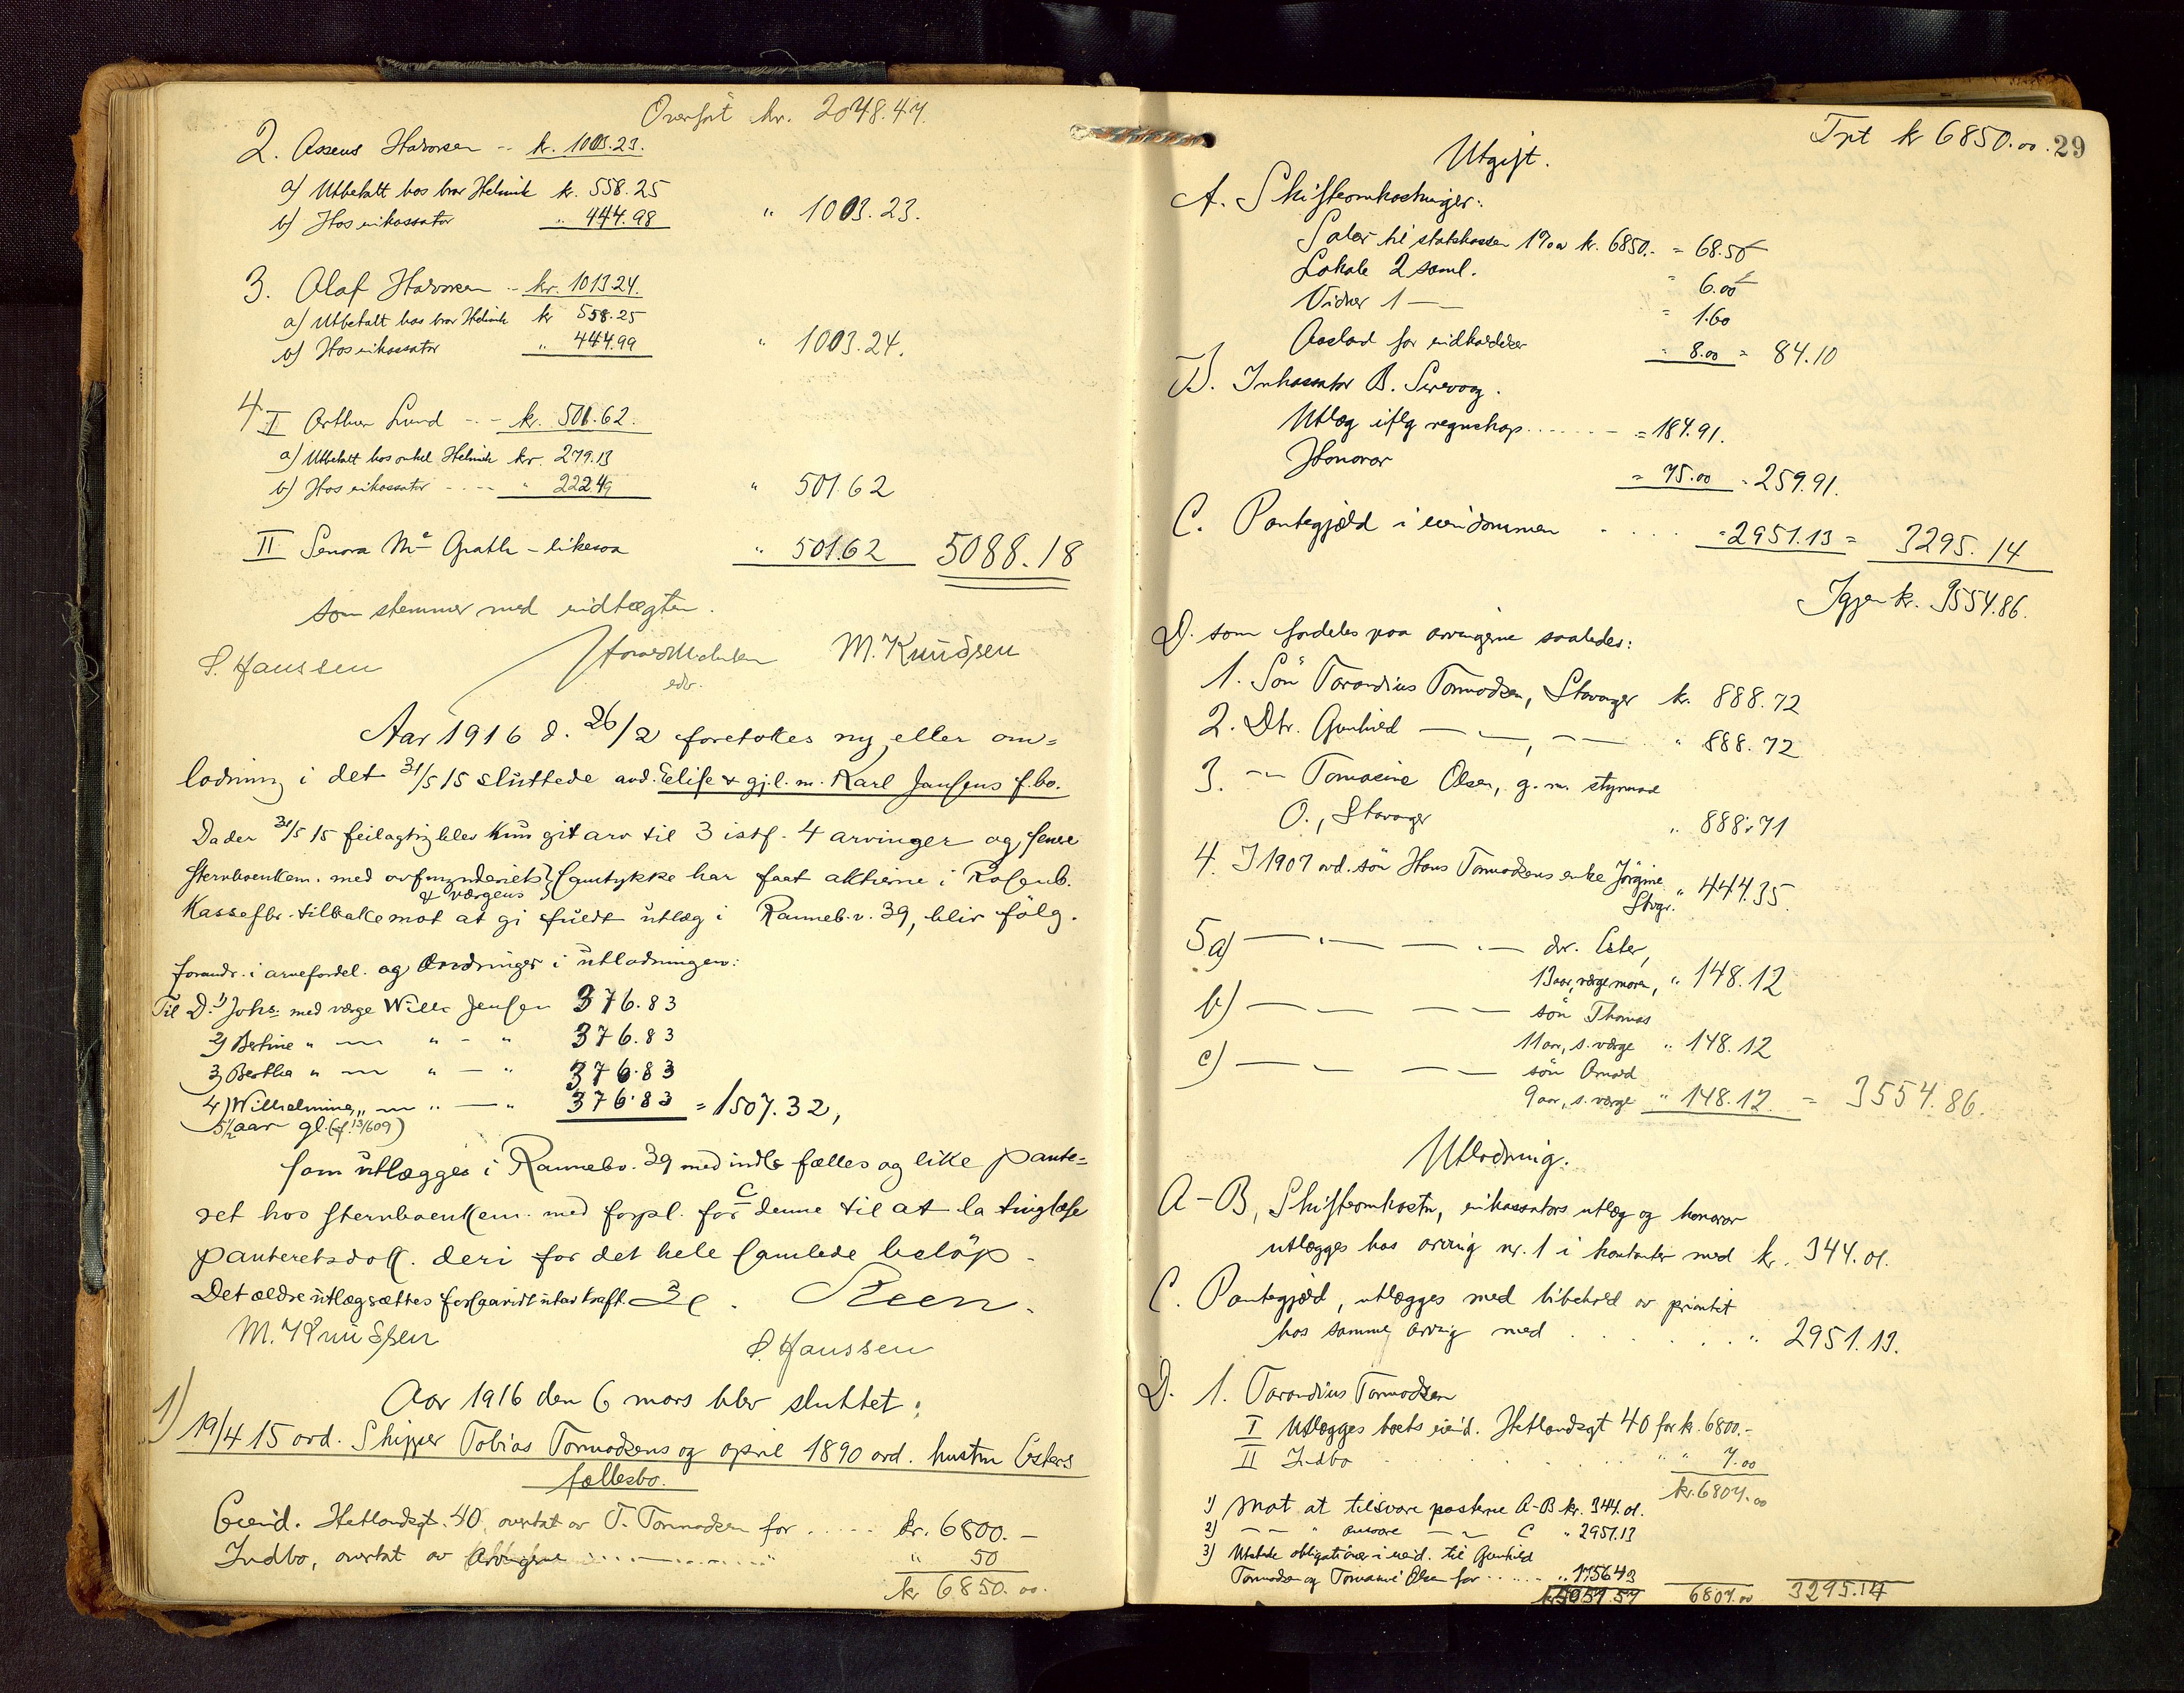 Overført kr. 2048.47.
2. Asseus Halvorsen -- kr. 1003.23.
a) Utbetalt hos bror Helmik kr. 558.25
b) Hos inkassator " 444.98 " 1003.23.
3. Olaf Halvorsen -- kr. 1013 24.
a) Utbetalt hos bror Helmik kr 558.25
b) Hos inkassator " 444.99 " 1003.24.
4 I Arthur Lund -- kr. 501.62.
a) Utbetalt hos onkel Helmik kr. 279.13
b) Hos inkassator ---- " 222.49 " 501.62
II Senora Mc Grath - likesaa " 501.62 5088.18
som stemmer med indtægten.
S. Haussen M. Knudsen
edv.
Aar 1916 d. 26/2 foretokes ny eller om=
lodning i det 31/5 15 sluttede avd. Elise & gjl. m. Karl Jansens f.bo.
Da der 31/5 15 feilagtig blev kun git arv til 3 istf. 4 arvinger og senere
stervboenkem. med ovfmynderiets & værgens samtykke har faat aktierne i Rosenb.
Kassefbr. tilbake mot at gi fuldt utlæg i Ranneb.v. 39, blir følg.
forandr. i arvefordel. og ændringer i utlodningen:
Til D. 1) Johs. med værge Wille Jensen 376.83
2) Bertine " — " - " 376.83
3) Bertha " — " — " 376.83
4) Wilhelmine " — " — " 376.83 = 1507.32,
5½ aar gl. (f. 13/6 09)
som utlægges i Rannebv. 39 med indtil fælles og like pante=
ret hos stervboenkem. med forpl. for denne til at la tinglæse
panteretsdok. deri for det hele samlede beløp -
Det ældre utlæg sættes forsaavidt utav kraft. Steen.
M. Knudsen
S. Haussen
Aar 1916 den 6 mars blev sluttet:
1) 19/4 15 avd. Skipper Tobias Tormodsens og april 1890 avd. hustru Esters
fællesbo.
Eiend. Hetlandsgt. 40, overtat av T. Tormodsen for ..... kr. 6800.-
Indbo, overtat av Arvingerne ........ " 50
kr 6850.00.
Tpt kr 6850.00. 29
Utgift.
A. Skifteomkostninger:
Salær til statskassen 1% av kr. 6850.- = 68.50
Lokale 2 saml. " 6.00
Vidner 1 — = 1.60
Avslad for indkaldelser " 8.00 = 84.10
B. Inkassator B. Sirevaag.
Utlæg iflg regnskap ...... = 184.91.
Honorar = 75.00 = 259.91.
C. Pantegjæld i eiendommen .... = 2951.13 = 3295.14
Igjen kr. 3554.86.
D. som fordeles paa arvingerne saaledes:
1. Søn Tarandius Tormodsen, Stavanger kr. 888.72
2. Dtr. Gunhild — —, — — " 888.72
3. -- Tomasine Olsen, g. m. styrmand
O., Stavanger " 888.71
4. I 1907 avd. søn Hans Tormodsens enke Jørgine " 444.35.
Stvgr.
5 a) — . — — . — dtr. Ester,
13 aar, værge moren, " 148.12
b) — — — — søn Thomas
11 aar, s. værge " 148.12
c) — — — — søn Arnold
9 aar, s. værge " 148.12 = 3554.86.
Utlodning.
A - B, Skifteomkostn, inkassators utlæg og honorar
utlægges hos arving nr. 1 i kontanter med kr. 344.01.
C. Pantegjæld, utlægges med bibehold av prioritet
hos samme arving med ..... " 2951.13.
D. 1. Tarandius Tormodsen
I Utlægges boets eiend. Hetlandsgt 40 for kr. 6800.-
II Indbo ....... " " 7.00
kr. 6807.00
1) Mot at tilsvare posterne A-B kr. 344.01.
2) — — " ansvare — — C " 2951.13
3) Utstede obligationer i eiend. til Gunhild
Tormodsen og Tomasine Olsen for ..... " 1756 43
kr 5051.57 6807.00 3295.14